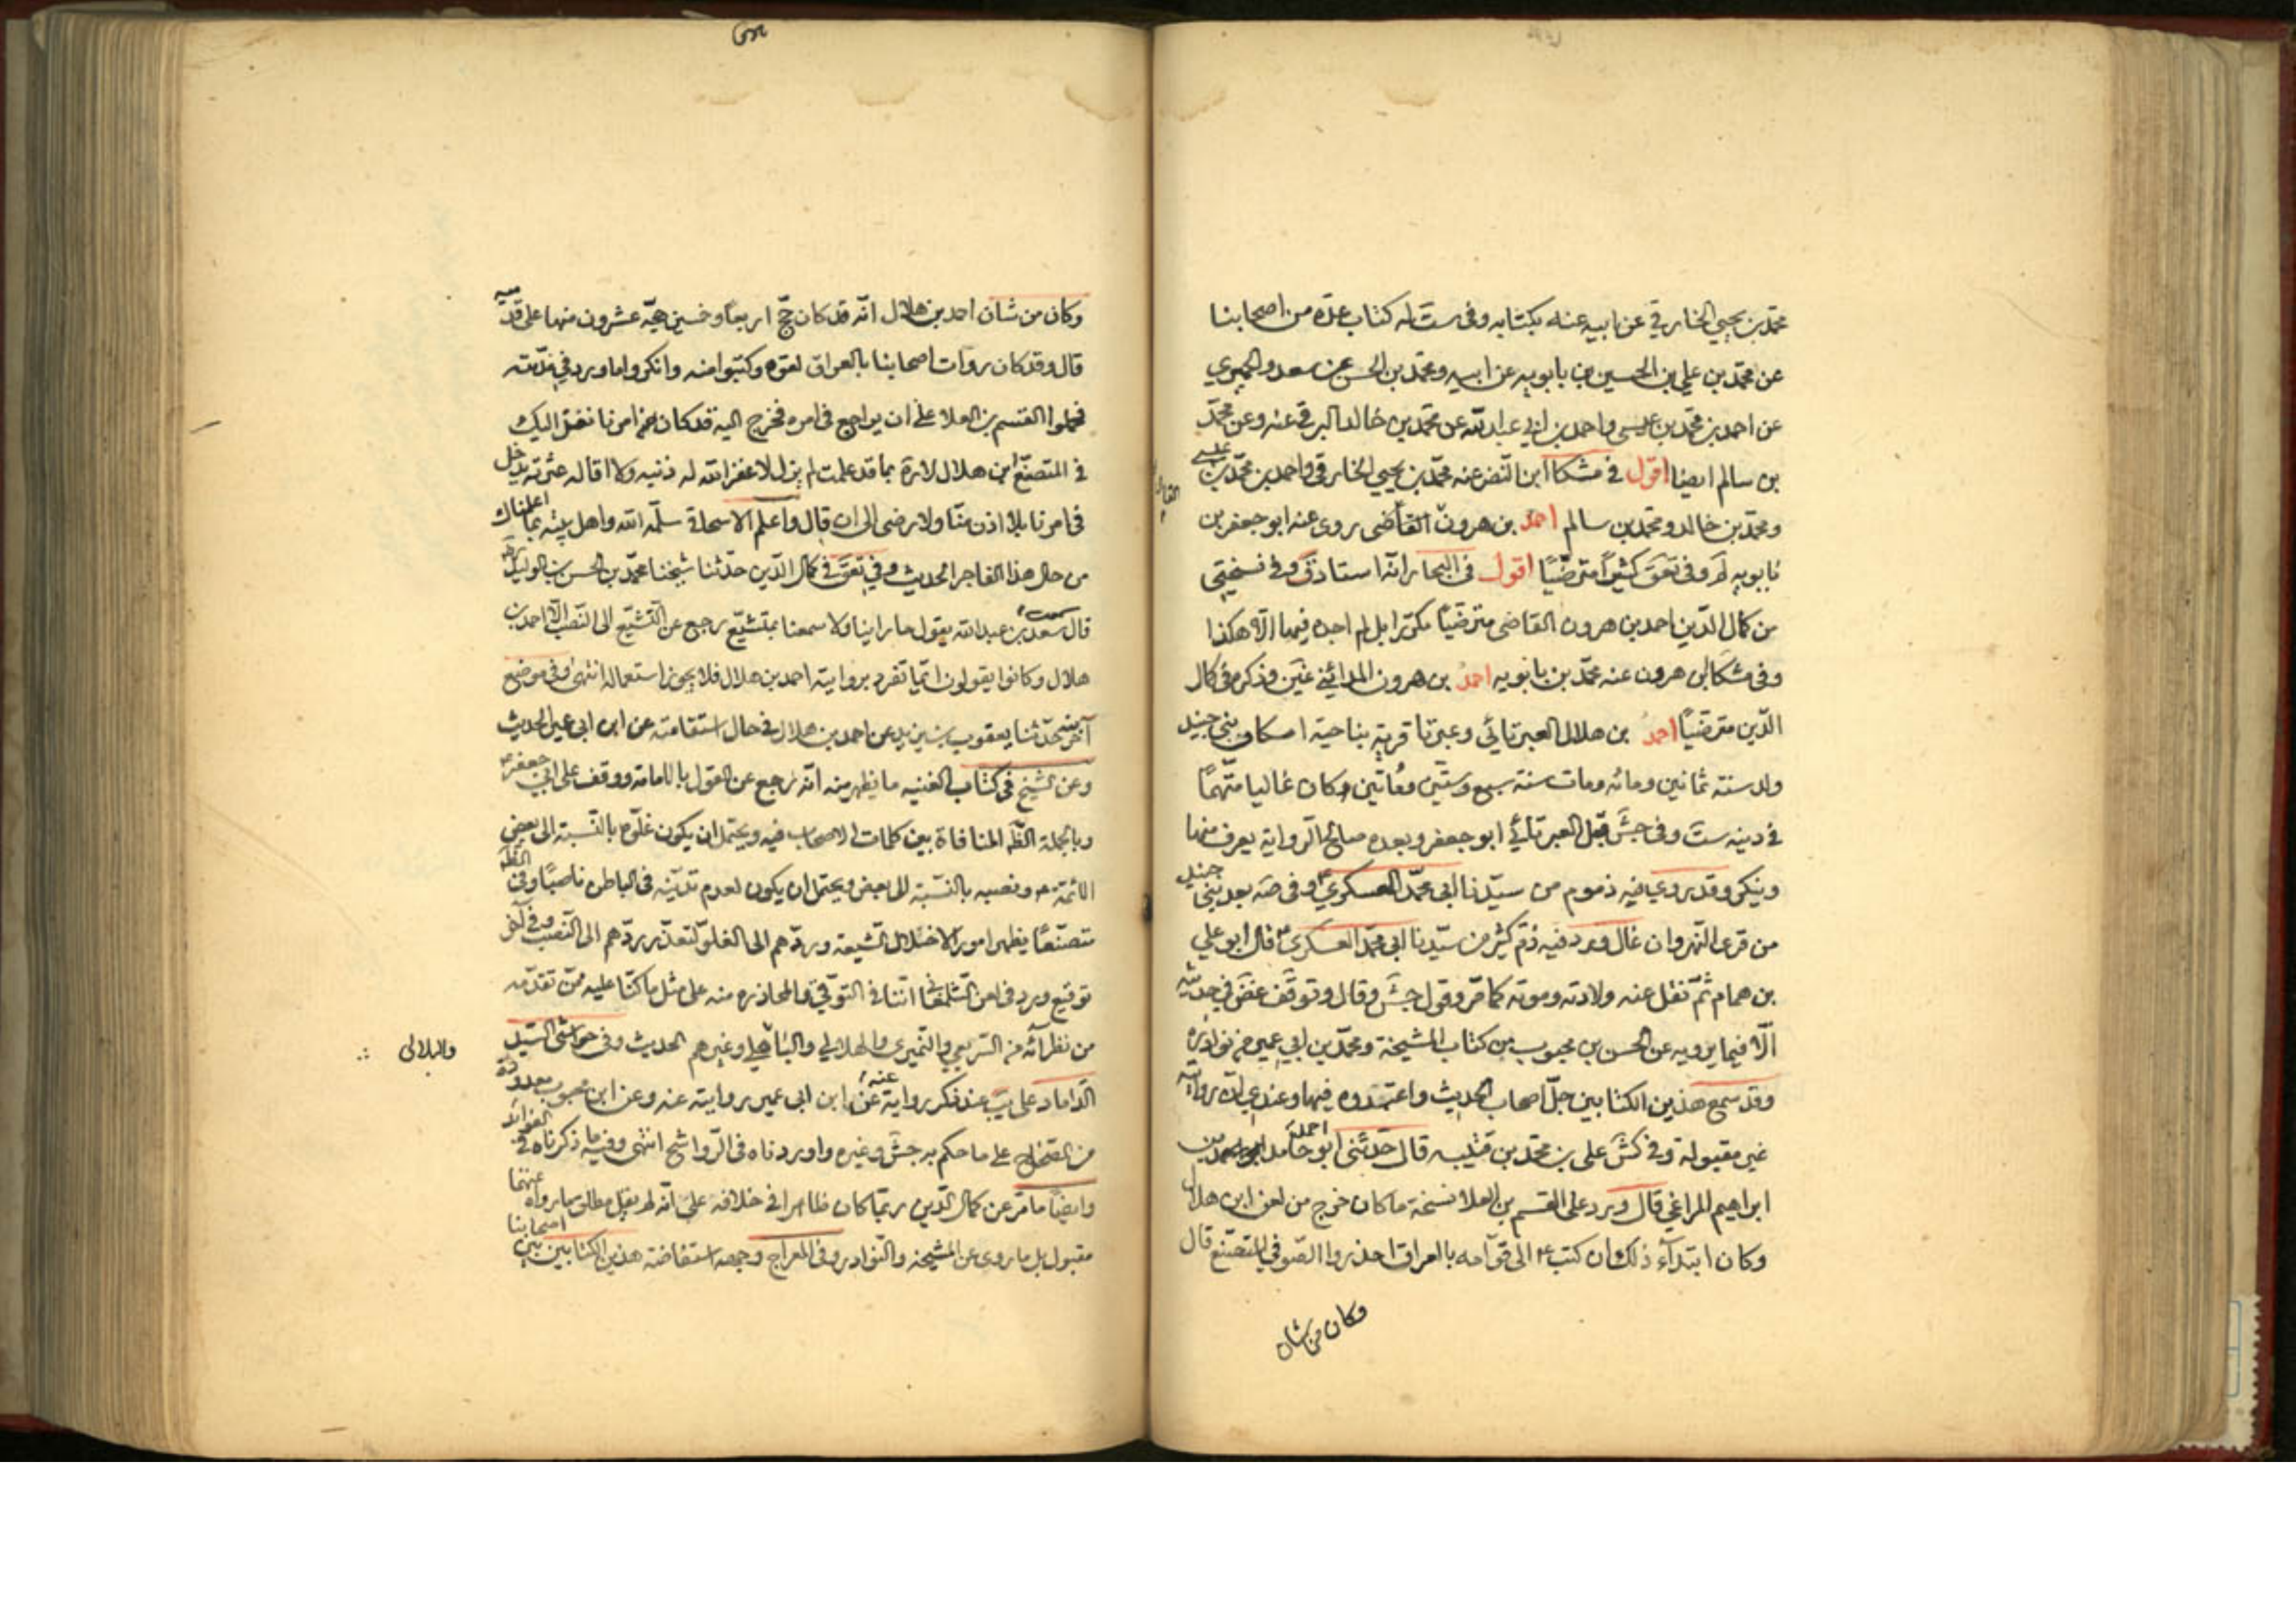 محمد بن يحيى الخازقي عن ابيه عنه بكتابه وفى ست له كتاب عدة من اصحابنا
عن محمد بن علي بن الحسين بن بابويه عن ابيه ومحمد بن الحسن عن سعد والحميري
عن احمد بن محمد بن عيسى واحمد بن ابي عبد الله عن محمد بن خالد البرقي عنه وعن محمد
بن سالم ايضا اقول في مشكا ابن النضر عنه محمد بن يحيى الخازقي واحمد بن محمد بن عيسى
ومحمد بن خالد ومحمد بن سالم احمد بن هرون القاضى روى عنه ابو جعفر بن
بابويه وفى تعق كثيرا مترضيا اقول في البحار انه استاد ق وفي نسختي
من كمال الدين احمد بن هرون القاضى مترضيا مكررا بل لم اجده فيها الا هكذا
وفى مشكا ابن هرون عنه محمد بن بابويه احمد بن هرون المدائني غين وذكره في كمال
الدين مترضيا احمد بن هلال العبرتائي وعبرتا قرية بناحية اسكاف بني جنيد
ولد سنة ثمانين ومائه ومات سنة سبع وستين ومأتين وكان غاليا متهما
في دينه ست وفى جش قبل العبرتائي ابو جعفر وبعده صالح الرواية يعرف منها
وينكر وقد روي فيه ذموم من سيدنا ابى محمد العسكري ع وفى صه بعد بنى جنيد
من قرى النهروان غال ورد فيه ذم كثير من سيدنا ابى محمد العسكرى ع قال ابو علي
بن همام ثم نقل عنه ولادته وموته كما مر وقول جش وقال وتوقف غض في حديثه
الا فيما يرويه عن الحسن بن محبوب من كتاب المشيخة ومحمد بن ابي عمير من نوادره
وقد سمع هذين الكتابين جل اصحاب الحديث واعتمدوه فيهما وعندي ان روايته
غير مقبولة وفى كش علي بن محمد بن قتيبه قال حدثنى ابو حامد احمد بن
ابراهيم المراغي قال ورد على القسم بن العلا نسخة ما كان خرج من لعن ابن هلال
وكان ابتداء ذلك ان كتب ع الى قوامه بالعراق احذروا الصوفي المتصنع قال
وكان من شان
وكان من شان احمد بن هلال انه قد كان حج اربعا وخمسين حجة عشرون منها على قدميه
قال وقد كان روات اصحابنا بالعراق لقوه وكتبوا منه وانكروا ما ورد في مذمته
فحملوا القسم بن العلا على ان يراجع في امره فخرج اليه قد كان من امرنا نفذ اليك
في المتصنع ابن هلال لا ره بما قد علمت لم يزل لا غفر الله له ذنبه ولا اقاله عثرته يدخل
في امرنا بلا اذن منا ولا رضى الى ان قال واعلم الاسحاقي سلمه الله واهل بيته بما اعلمناك
من حال هذا الفاجر الحديث وفي تعق في كمال الدين حدثنا شيخنا محمد بن الحسن بن الوليد ره
قال سمعت سعد بن عبد الله يقول ما راينا ولا سمعنا بمتشيع رجع عن التشيع الى النصب الا احمد بن
هلال وكانوا يقولون ان ما تفرد بروايته احمد بن هلال فلا يجوز استعماله انتهى وفى موضع
آخر منه حدثنا يعقوب بن يزيد عن احمد بن هلال في حال استقامته عن ابن ابى عمير الحديث
وعن الشيخ في كتاب الغيبه ما يظهر منه انه رجع عن القول بالامامة ووقف على ابي جعفر ع
وبالجملة الظه المنافاة بين كلمات الاصحاب فيه ويحتمل ان يكون غلوه بالنسبة الى بعض
الائمة ع ونصبه بالنسبة الى بعض ويحتمل ان يكون لعدم تدينه في الباطن ناصبا وفي الظه
متصنعا يظهر امورا لاختلال الشيعة وردهم الى الغلو لتعذر ردهم الى النصب وفي آخر
توقيع ورد في لعن الشلمغاني اننا في التوقي والمحاذرة منه على مثل ما كنا عليه ممن تقدمه
من نظرائه من الشريعي والنميري والهلالي والبلالي وغيرهم الحديث وفى حواشى السيد
والبلالى
الداماد على يب عند ذكر رواية عنه عن ابن ابى عمير روايته عنه وعن ابن محبوب معدودة
من الصحاح على ما حكم به جش وغيره واوردناه في الرواشح انتهى وفيه ما ذكرناه في الفوائد
وايضا ما مر عن كمال الدين ربما كان ظاهرا في خلافه على انه لم يقل مطلق ما رواه عنهما
مقبول بل ما روى عن المشيخه والنوادر وفي المعراج وجهه استفاضة هذين الكتابين بين اصحابنا